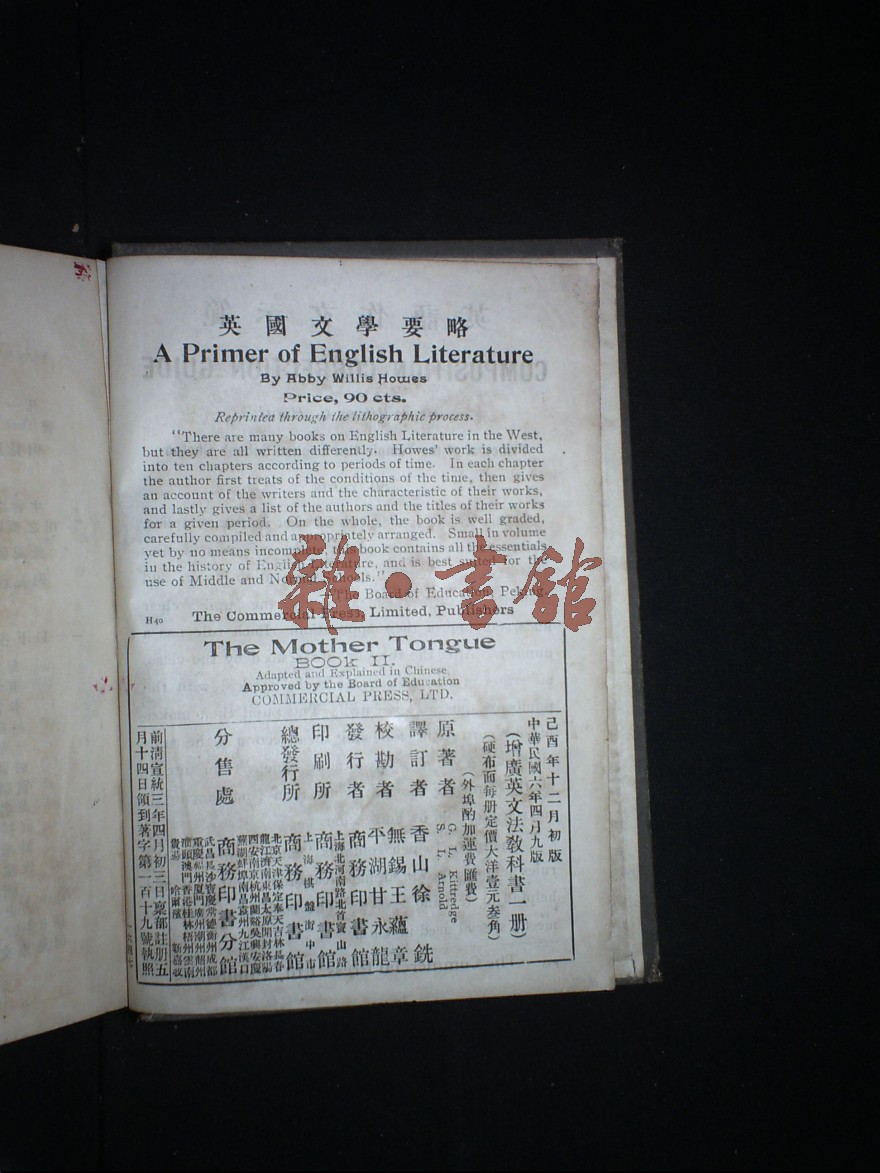 英國文學要略
A Primer of English Literature
By Abby Willis Howes
Price, 90 cts.
Reprinted through the lithographic process.
"There are many books on English Literature in the West,
but they are all written differently. Howes' work is divided
into ten chapters according to periods of time. In each chapter
the author first treats of the conditions of the time, then gives
an account of the writers and the characteristic of their works,
and lastly gives a list of the authors and the titles of their works
for a given period. On the whole, the book is well graded,
carefully compiled and appropriately arranged. Small in volume
yet by no means incomplete, this book contains all the essentials
in the history of English Literature, and is best suited for the
use of Middle and Normal Schools."
The Board of Education, Peking.
H40 The Commercial Press, Limited, Publishers
雜·書館
The Mother Tongue
BOOK II.
Adapted and Explained in Chinese
Approved by the Board of Education
COMMERCIAL PRESS, LTD.
己酉年十二月初版
中華民國六年四月九版
(增廣英文法教科書一册)
(硬布面每册定價大洋壹元叁角)
(外埠酌加運費匯費)
原著者 G. L. Kittredge
S. L. Arnold
譯訂者 香山徐銑
校勘者 無錫王蘊章
平湖甘永龍
發行者 商務印書館
上海北河南路北首寶山路
印刷所 商務印書館
上海棋盤街中市
總發行所 商務印書館
北京天津保定奉天吉林長春
龍江濟南東昌太原開封洛陽
西安南京杭州蘭谿吳興安慶
蕪湖蚌埠南昌袁州九江漢口
分售處 商務印書分館
武昌長沙寶慶常德衡州成都
重慶福州廈門廣州潮州韶州
汕頭澳門香港桂林梧州雲南
貴陽 哈爾濱 新嘉坡
前清宣統三年四月初三日稟部註册五
月十四日領到著字第一百十九號執照